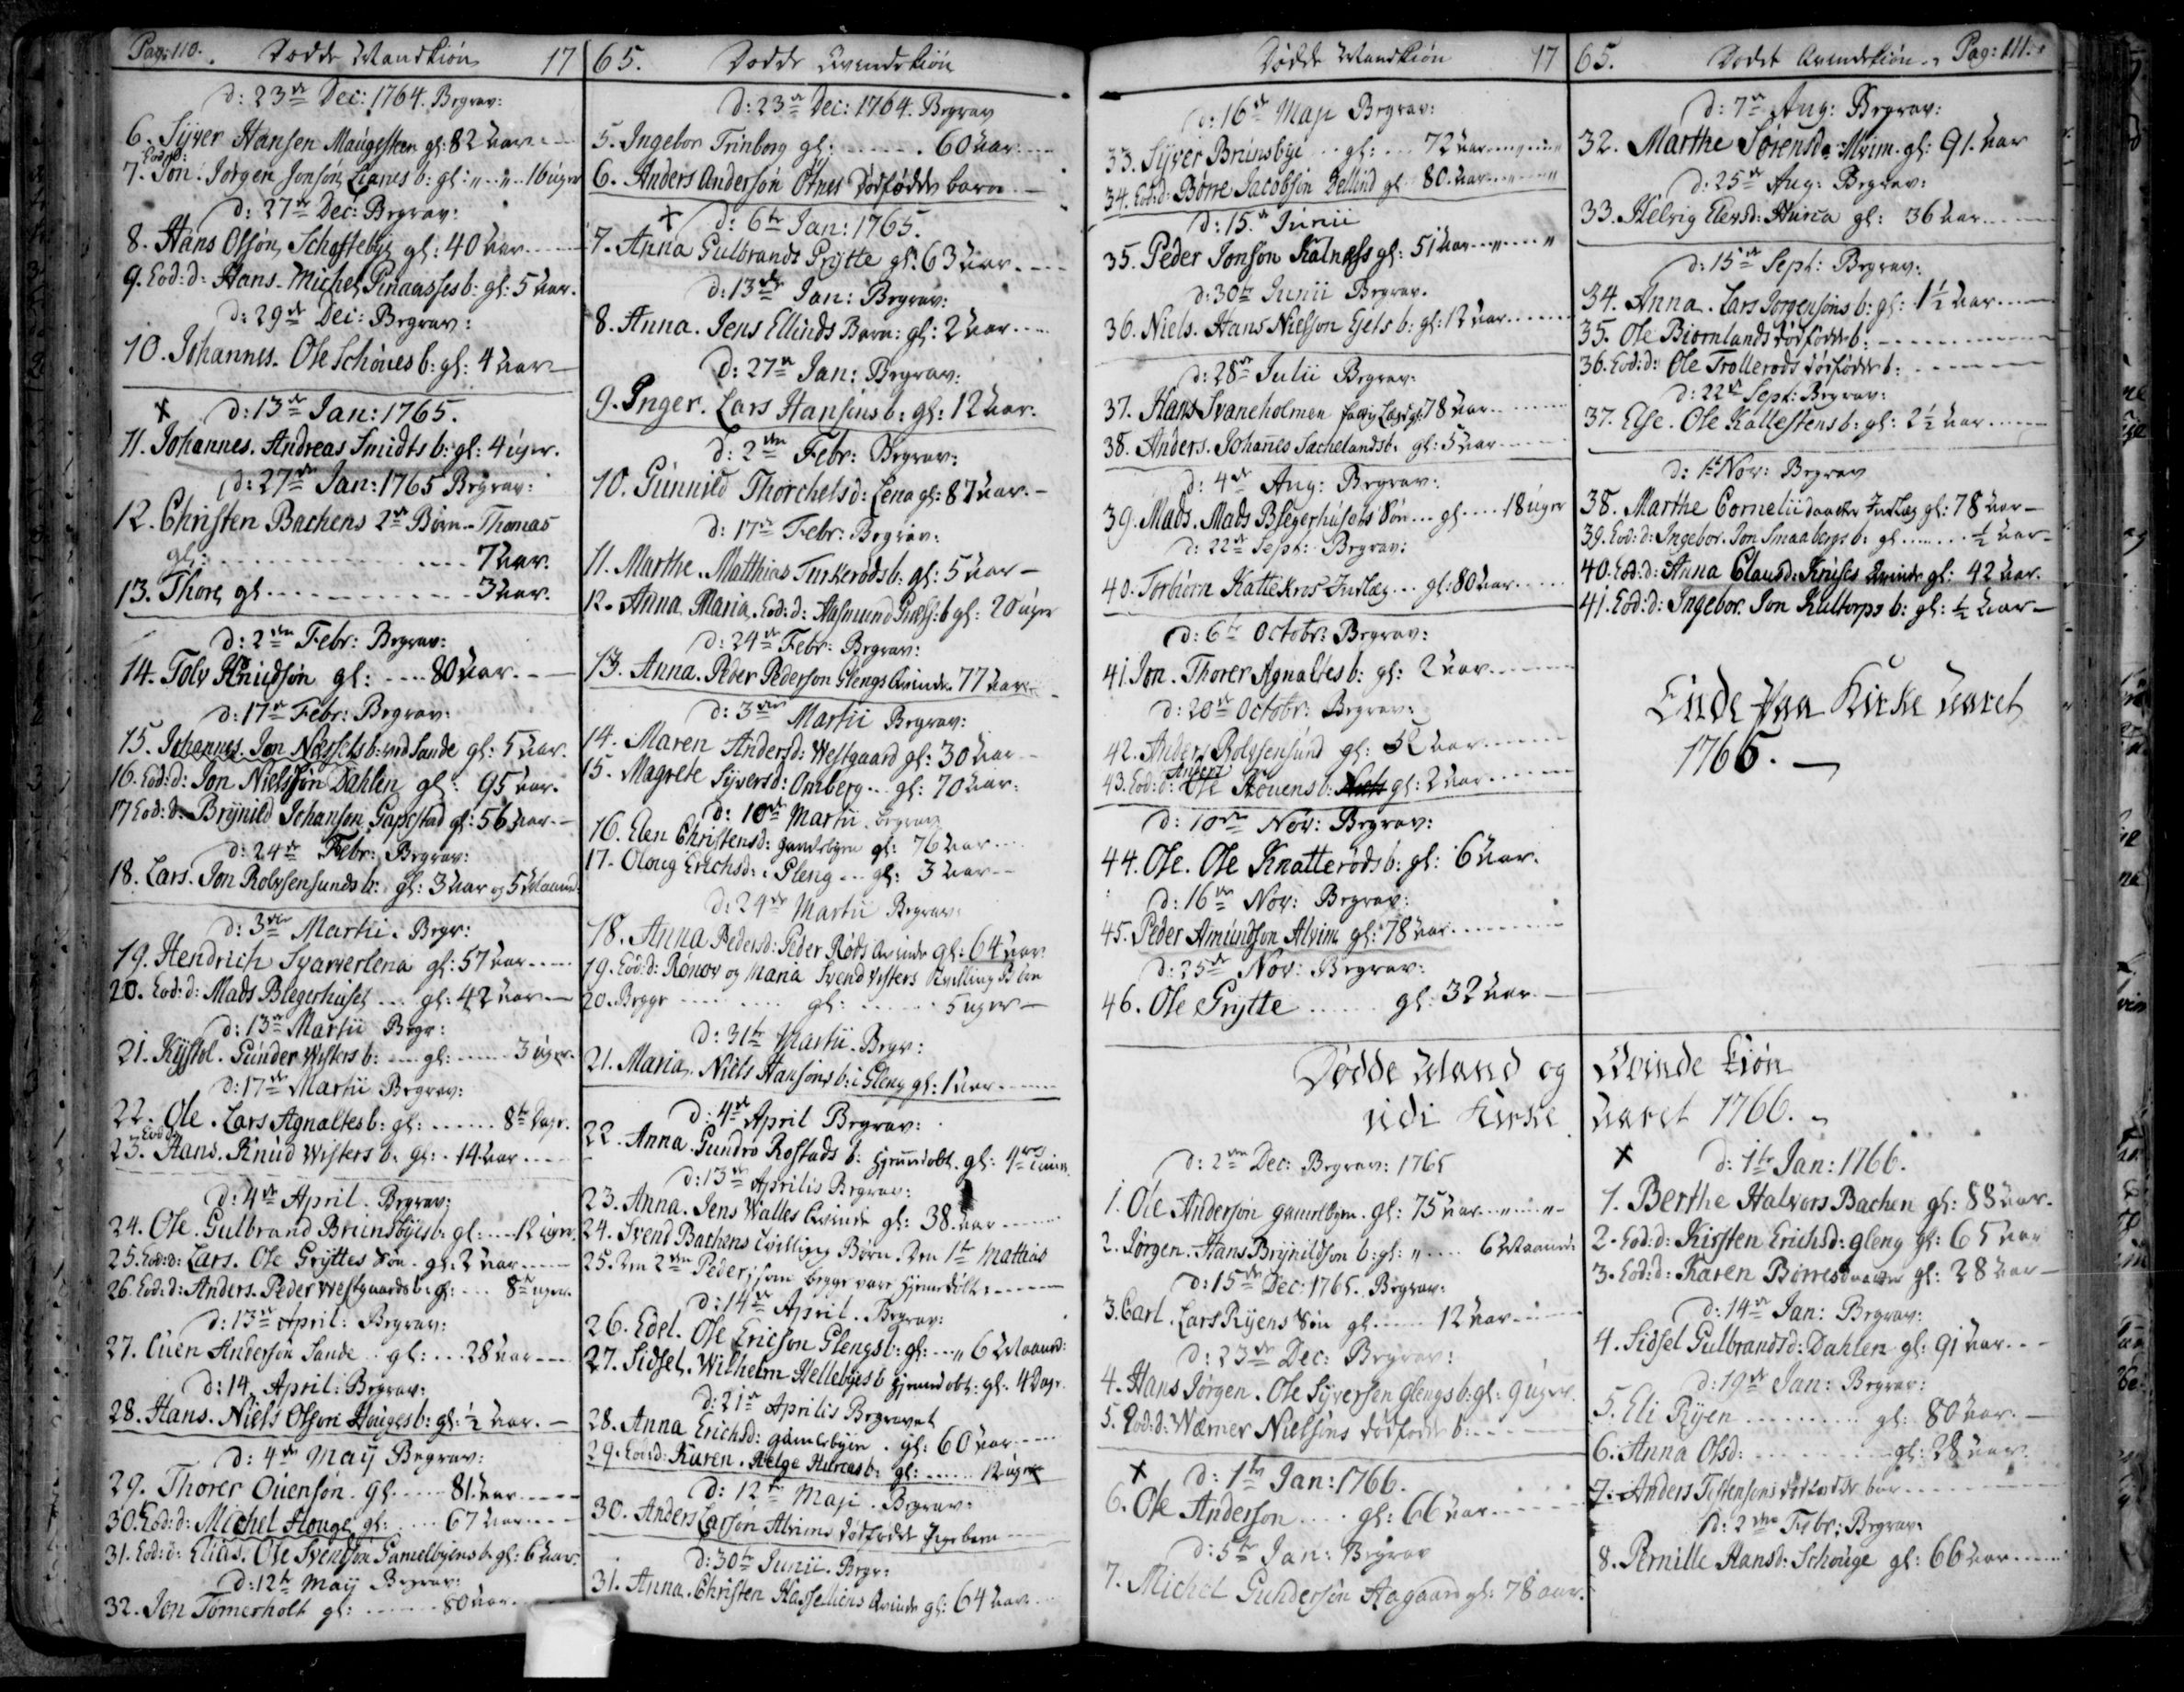 Pag: 110. Dödde Mandkiön 17
d: 23de Dec: 1764. Begrav:
6. Syver Hansen Maugesten gl: 82 aar
Eod: d:
7. Jon. Jörgen Jonsön Lianes b: gl: 16 uger
d: 27de Dec: Begrav:
8. Hans Olsön Schofteby gl: 40 aar
9. Eod: d: Hans. Michel Pinaasses b: gl: 5 aar.
d: 29de Dec: Begrav:
10. Johannes. Ole Schöues b: gl: 4 aar
d: 13de Jan: 1765.
11. Johannes. Andreas Smidts b: gl: 4 uger.
d: 27de Jan: 1765 Begrav:
12. Christen Bachens 2de Börn. Thomas
gl: 7 aar.
13. Thore gl 3 aar.
d: 2den Febr: Begrav:
14. Tolv Knudsön gl: 80 aar.
d: 17de Febr: Begrav:
15. Johannes. Jon Næssets b: ved Sande gl: 5 aar.
16. Eod: d: Jon Nielssön Dahlen gl: 95 aar.
17 Eod: d: Brynild Johanson Gapestad gl: 56 aar.
d: 24de Febr: Begrav:
18. Lars. Jon Rolvsensunds b: gl: 3 aar og 5 Maaned
d: 3die Martii. Begr:
19. Hendrich Svarverlena gl: 57 aar
20. Eod: d: Mads Blegerhuset gl: 42 aar
d: 13de Martii Begr:
21. Kystol. Gunder Wisters b: gl: 3 uger.
d: 17de Martii Begrav:
22. Ole. Lars Agnaltes b: gl: 8te Dage.
Eod d:
23. Hans. Knud Wisters b: gl: 14 aar
d: 4de April. Begrav:
24. Ole. Gulbrand Brunsbyes b: gl: 12 uger
25. Eod: d: Lars. Ole Gryttes Sön. gl: 2 aar
26. Eod: d: Anders. Peder Westgaards b: gl: 8te uger.
d: 13de April: Begrav:
27. Euen Andersön Sande gl: 28 aar
d: 14 April: Begrav:
28. Hans. Niels Olsson Hauges b: gl: ½ aar.
d: 4de May Begrav:
29. Thorer Ouensön. gl 81 aar
30. Eod: d: Michel Houge gl: 67 aar
31. Eod: d: Elias. Ole Svendsön Gamelbyens b. gl: 6 aar.
d: 12te May Begrav:
32. Jon Tomerholt gl: 80 aar
65. Dödde Qvindekiön
d: 23de Dec: 1764. Begrav
5. Ingebor Trinborg gl: 60 aar
6. Anders Andersön Ötnes Dödfödde barn
d: 6te Jan: 1765.
7. Anna Gulbrands Grytte gl: 63 aar.
d: 13de Jan: Begrav:
8. Anna. Jens Ellinds Barn: gl: 2 aar
d: 27de Jan: Begrav:
9. Inger. Lars Hansens b: gl: 12 aar.
d: 2den Febr: Begrav:
10. Gunnild Thorchelsd: Lena gl: 87 aar.
d: 17de Febr: Begrav:
11. Marthe. Matthias Turkeröds b: gl: 5 aar
12. Anna Maria. Eod: d: Aasmund b gl: 20 uger
d: 24de Febr: Begrav:
13. Anna. Peder Pederson Glengs Qvinde. 77 aar
d: 3die Martii Begrav:
14. Maren Andersd: Westgaard gl: 30 aar
15. Magrete Syversd: Omberg gl: 70 aar:
d: 10de Martii Begrav
16. Elen Christensd: gamlebyen gl: 76 aar
17. Oloug Erichsd: Gleng gl: 3 aar
d: 24de Martii Begrav:
18. Anna Pedersd: Peder Röds Qvinde gl: 64 aar
19. Eod: d: Rönov og Maria Svend Wisters Tvilling Börn
20. Begge gl: 5 uger
d: 31te Martii. Begr:
21. Maria. Niels Hansöns b: i Gleng gl: 1 aar
d: 4de April Begrav:
22. Anna. Gundro Rostads b: hjemdöbt. gl:
d: 13de Aprilis Begrav:
23. Anna. Jens Walles Qvinde gl: 38. aar
24. Svend Bachens tvilling Börn. Den 1te Mattias
25. Den 2den Peder; som begge vare hjemdöbt:
d: 14de April. Begrav:
26. Edel. Ole Ericson Glengs b: gl: 6 Maaned:
27. Sidsel. Wilhelm Hellebyes b hjemdöbt: gl: 4 Dage.
d: 21de Aprilis Begravet
28. Anna Erichsd: gamlebyen. gl: 60 aar
29. Eod: d: Karen. Helge Hurcas b: gl: 12 uger
d: 12te Maji. Begrav:
30. Anders Larsön Alvims dödfödde Pige barn
d: 30te Junii. Begr:
31. Anna. Christen Hasselliens Qvinde gl: 64 aar
Dödde Mandkiön 17
d: 16de Maji Begrav:
33. Syver Brunsbye gl: 72 aar
34. Eod: d: Börre Jacobsön Gellind gl 80. aar
d: 15de Junii
35. Peder Jonson Kalness gl: 51 aar
d: 30te Junii Begrav.
36. Niels. Hans Nielson Gjels b: gl: 12 aar
d: 28de Julii Begrav:
37. Hans Svaneholmen gl: 78 aar
38. Anders. Johanes Sachelands b. gl: 5 aar
d: 4de Aug: Begrav:
39. Mads. Mads Blegerhusets Sön gl 18 uger
d: 22de Sept: Begrav:
40. Torbiörn Kattekros Indlæg gl: 80 aar
d: 6te Octobr: Begrav:
41. Jon. Thorer Agnaltes b: gl: 2 aar
d: 20de Octobr: Begrav:
42. Anders Rolvsensund gl: 52 aar
Anders
43. Eod: d: Ole Houens b: gl: 2 aar
d: 10de Nov: Begrav:
44. Ole. Ole Knatteröds b: gl: 6 aar.
d: 16de Nov: Begrav:
45. Peder Amundson Alvim gl: 78 aar
d: 25de Nov: Begrav:
46. Ole Grytte gl: 32 aar.
Dödde Mand og Qvinde kiön
udi Kirke Aaret 1766.
d: 2den Dec: Begrav: 1765
1. Ole Anderson gamelbyen. gl: 75 aar
2. Jörgen. Hans Brynildson b: gl: 6 Maaned:
d: 15de Dec: 1765. Begrav:
3. Carl. Lars Ryens Sön gl 12 aar
d: 23de Dec: Begrav:
4. Hans Jörgen. Ole Syversen Glengs b: gl: 9 uger.
5. Eod: d: Wærner Nielsöns dödfödde b:
d: 1te Jan: 1766.
6. Ole Anderson gl: 66 aar
d: 5te Jan: Begrav
7. Michel Gundersön Aagaard gl: 78 aar.
65. Dödde Qvindekiön. Pag: 111.
d: 7de Aug: Begrav:
32. Marthe Sörensd: Alvim. gl: 91. aar
d: 25de Aug: Begrav:
33. Helvig Elersd: Hurca gl: 36 aar
d: 15de Sept: Begrav:
34. Anna. Lars Jörgensöns b: gl: 1½ aar
35. Ole Biörnlands dödfödde b:
36. Eod: d: Ole Trolleröds dödfödde b:
d: 22de Sept: Begrav:
37. Else. Ole Kallestens b: gl: 2½ aar
d: 1te Nov: Begrav
38. Marthe Cornelii daatter Indlæg gl: 78 aar
39. Eod: d: Ingebor. Jon Smaabergs b: gl ½ aar
40. Eod: d: Anna Clausd: Kruses Qvinde gl: 42 aar.
41. Eod: d: Ingebor. Jon Kultorps b: gl: ½ aar
Ende paa Kirke Aaret
1765.
d: 1te Jan: 1766.
1. Berthe Halvors Bachen gl: 88 aar.
2. Eod: d: Kirsten Erichsd: gleng gl: 65 aar
3. Eod: d: Karen Börresdaatter gl: 28 aar
d: 14de Jan: Begrav:
4. Sidsel Gulbrandsd: Dahlen gl: 91 aar
d: 19de Jan: Begrav:
5. Eli Ryen gl: 80 aar.
6. Anna Olsd: gl: 28 aar
7. Anders Tostensons dödfödde bar
d: 2den Febr: Begrav.
8. Pernille Hansd: Schouge gl: 66 aar